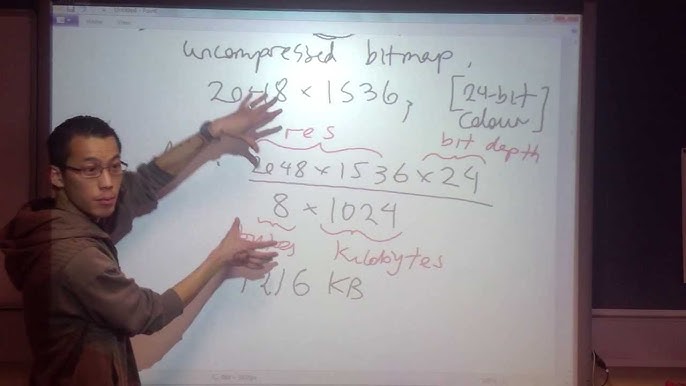 uncompressed bitmap,
2048 × 1536, [24-bit
Colour]
res
bit depth
2048 × 1536 × 24
8 × 1024
Kilobytes
KB